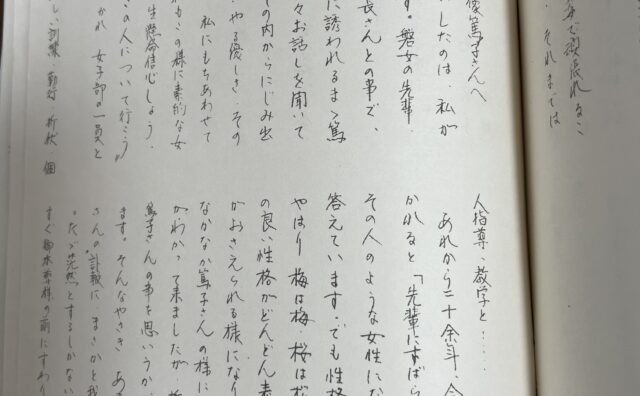 で頑張れるこ
それまでは
篤子さんへ
したのは、私が
す。磐女の先輩.
長さんとの事で、
に誘われるまゝ篤
々お話しを聞いて
の内からにじみ出
やる優しさ.その
私にもちあわせて
もこの様に素的な女
生懸命信心しよう.
この人について行こう〟
かれ 女子部の一員と
しい訓練.勤行 折伏 個
人指導、教学と.....
あれから二十余年、今
かれると「先輩にすばら
その人のような女性にな
答えています。でも性格
やはり 梅は梅 桜は桜
の良い性格がどんどん表
がおさえられる様になり
なかなか篤子さんの様に
かわかって来ましたが.
篤子さんの事を思いうか
ます。そんなやさき あ
さんの〝訃報に まさかと我
〝たゞ茫然〟とするしかない
すぐ御本尊様の前にすわり